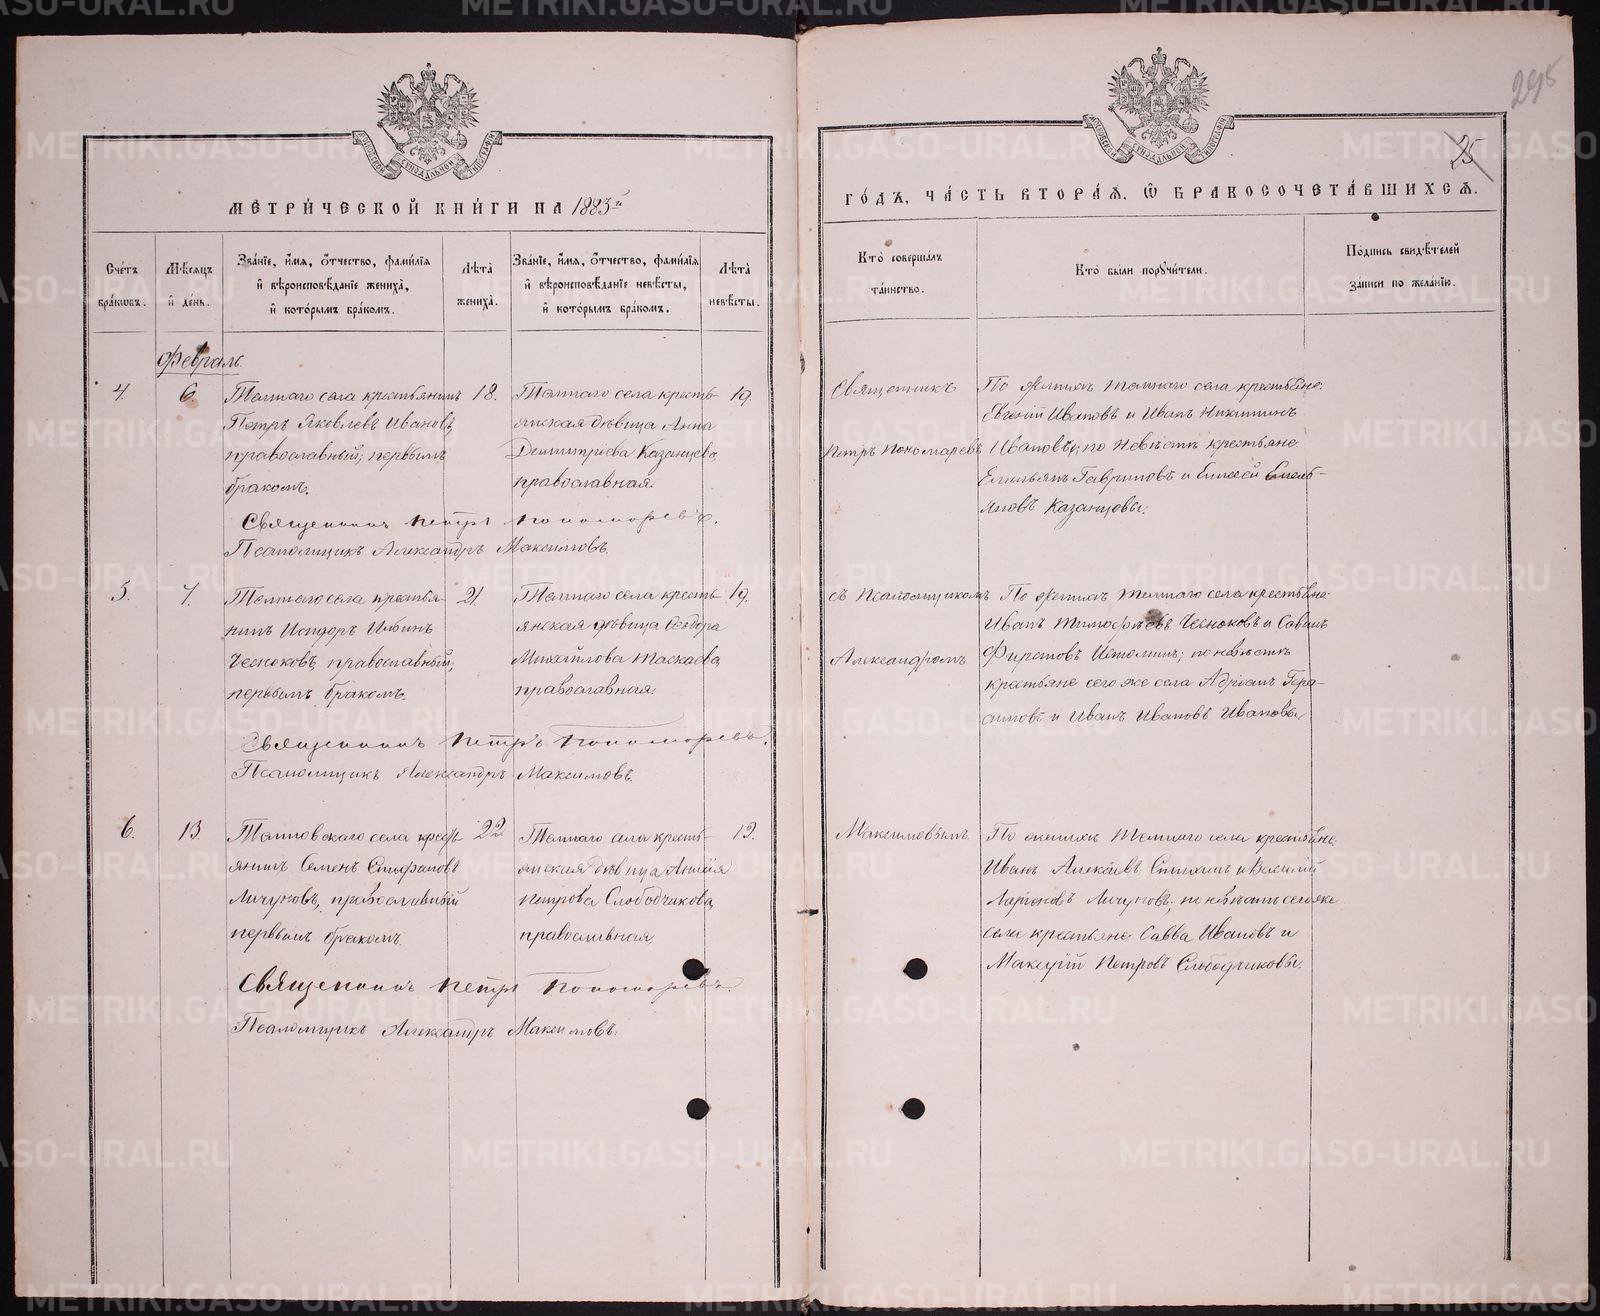 295
25
МЕТРИЧЕСКОЙ КНИГИ НА 1883й
ГОДЪ, ЧАСТЬ ВТОРАЯ, Ѡ БРАКОСОЧЕТАВШИХСЯ.
Счетъ браковъ.
Мѣсяцъ и день.
Званіе, имя, отчество, фамилія
и вѣроисповѣданіе жениха,
и которымъ бракомъ.
Лѣта жениха.
Званіе, имя, отчество, фамилія
и вѣроисповѣданіе невѣсты,
и которымъ бракомъ.
Лѣта невѣсты.
Кто совершалъ
таинство.
Кто были поручители.
Подпись свидѣтелей
записи по желанію.
Февраль
4.
6.
села крестьянинъ
Петръ Яковлевъ Ивановъ,
православный; первымъ
бракомъ.
18.
села кресть-
янская дѣвица Анна
Димитріева Казанцева,
православная.
19.
Священникъ
Петръ Пономаревъ
По женихѣ села крестьяне:
Евгеній Ивановъ и Иванъ Никитинъ
Ивановы; по невѣстѣ крестьяне:
Емельянъ Гавриловъ и Емель-
яновъ Казанцовы.
Священникъ Петръ Пономоревъ.
Псаломщикъ Александръ Максимовъ.
5.
7.
села крестья-
нинъ Исидоръ Ильинъ
Чесноковъ, православный;
первымъ бракомъ.
21.
села кресть-
янская дѣвица Ѳеодора
Михайлова Таскаева,
православная.
19.
съ Псаломщикомъ
Александромъ
По женихѣ села крестьяне:
Иванъ Тимофѣевъ Чесноковъ и Савинъ
Фирстовъ Истоминъ; по невѣстѣ
крестьяне сего же села Адріанъ Гера-
симовъ и Иванъ Ивановъ Ивановы.
Священникъ Петръ Пономоревъ.
Псаломщикъ Александръ Максимовъ.
6.
13.
села кресть-
янинъ Семенъ Стефановъ
Личуковъ, православный
первымъ бракомъ.
22
села кресть-
янская дѣвица
Петрова Слободчикова,
православная
19.
Максимовымъ
По женихѣ села крестьяне
Иванъ Алексѣевъ и Василій
Ларіоновъ Личуковъ; по невѣстѣ сего же
села крестьяне Савва Ивановъ и
Петровъ Слободчиковы.
Священникъ Петръ Пономоревъ.
Псаломщикъ Александръ Максимовъ.
METRIKI.GASO-URAL.RU